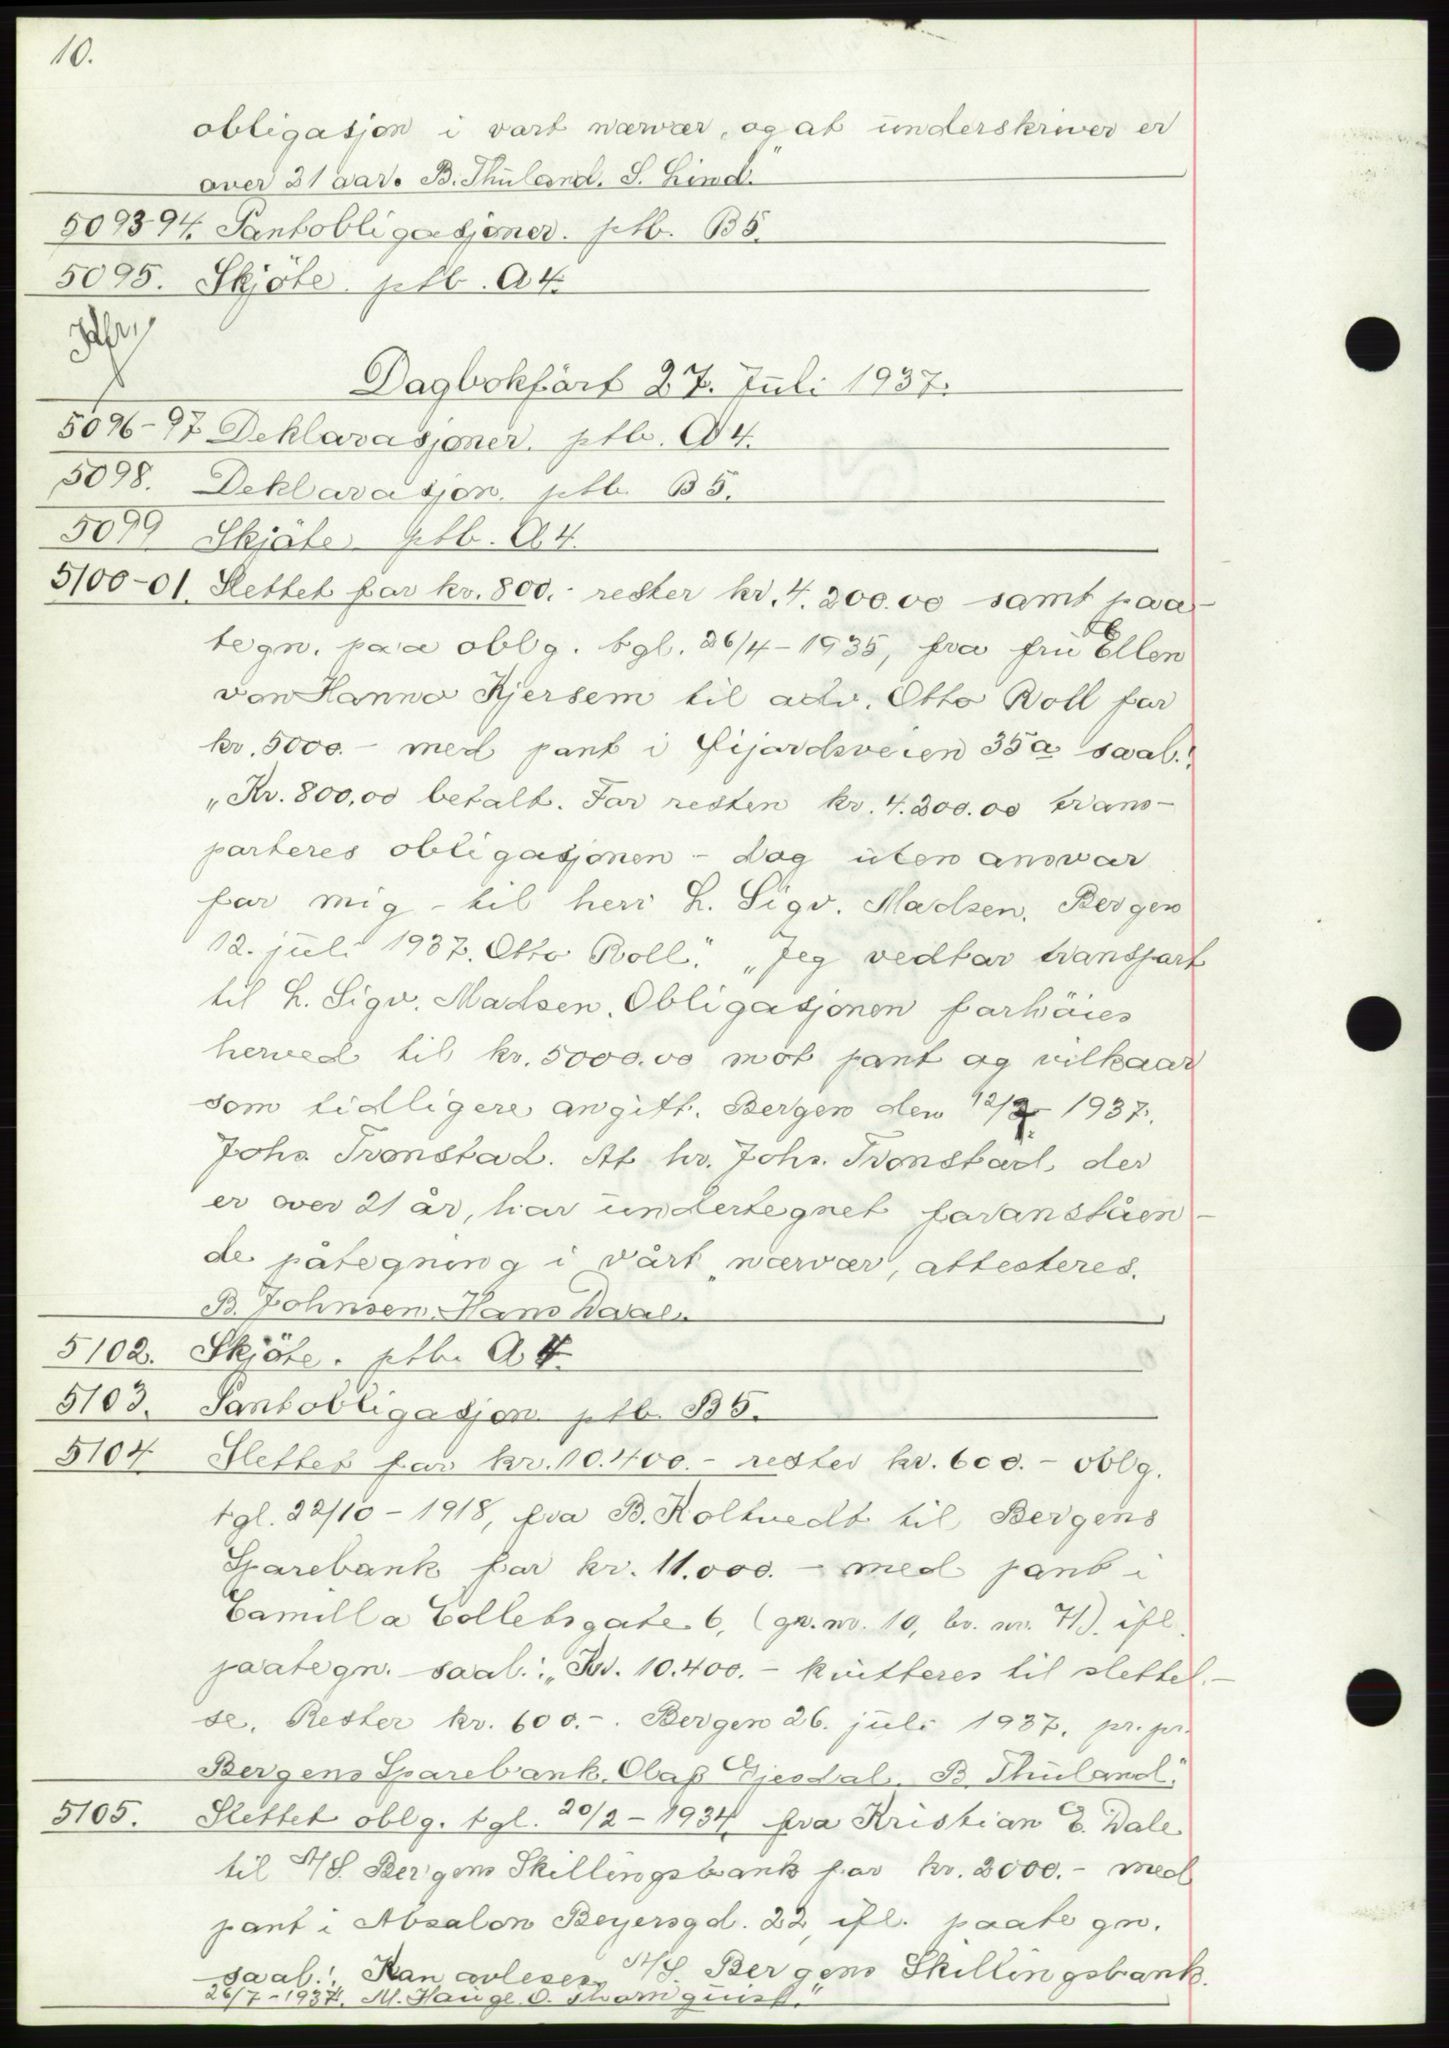 10.
obligasjon i vart nærvær, og at underskriver er
over 21 aar. B. Thuland. S. Lind."
5093-94. Pantobligasjoner. ptb. B5.
5095. Skjöte. ptb. A4.
Dagbokfört 27. Juli 1937.
5096-97 Deklarasjoner. ptb. A4.
5098. Deklarasjon. ptb. B5.
5099 Skjöte. ptb. A4.
5100-01. Slettet for kr. 800.- rester kr. 4.200.00 samt paa-
tegn. paa oblg. tgl. 26/4-1935, fra fru Ellen
von Hanno Kjersem til adv. Otto Roll for
kr. 5000.- med pant i Fijordsveien 35a saal.:
"Kr. 800,00 betalt. For resten kr. 4.200.00 trans-
porteres obligasjonen - dog uten ansvar
for mig - til herr L. Sigv. Madsen. Bergen
12. juli 1937. Otto Roll." "Jeg vedtar transport
til L. Sigv. Madsen. Obligasjonen forhöies
herved til kr. 5000.00 mot pant og vilkaar
som tidligere angitt. Bergen den 12/7- 1937.
Johs. Tronstad. At hr. Johs. Tronstad, der
er over 21 år, har undertegnet foranståen-
de påtegning i vårt nærvær, attesteres.
B. Johnsen. Hans Daae."
5102. Skjöte. ptb. A4.
5103. Pantobligasjon ptb. B5.
5104 Slettet for kr. 10.400.- rester kr. 600.- oblg.
tgl. 22/10-1918, fra B. Koltvedt til Bergens
Sparebank for kr. 11.000.- med pant i
Camilla Colletsgate 6, (gr. nr. 10, br. nr. 71). ifl.
paategn. saal.: "Kr. 10.400.- kvitteres til slettel-
se. Rester kr. 600.-. Bergen 26. juli 1937. pr. pr.
Bergens Sparebank. Olaf Gjesdal. B. Thuland."
5105. Slettet oblg. tgl. 20/2-1934, fra Kristian E. Dale
til A/S. Bergens Skillingsbank for kr. 2000.- med
pant i Absalon Beyersgd. 22, ifl. paategn.
saal.: "Kan avleses. A/S. Bergens Skillingsbank.
26/7-1937. M. Hauge. O. Thornquist."